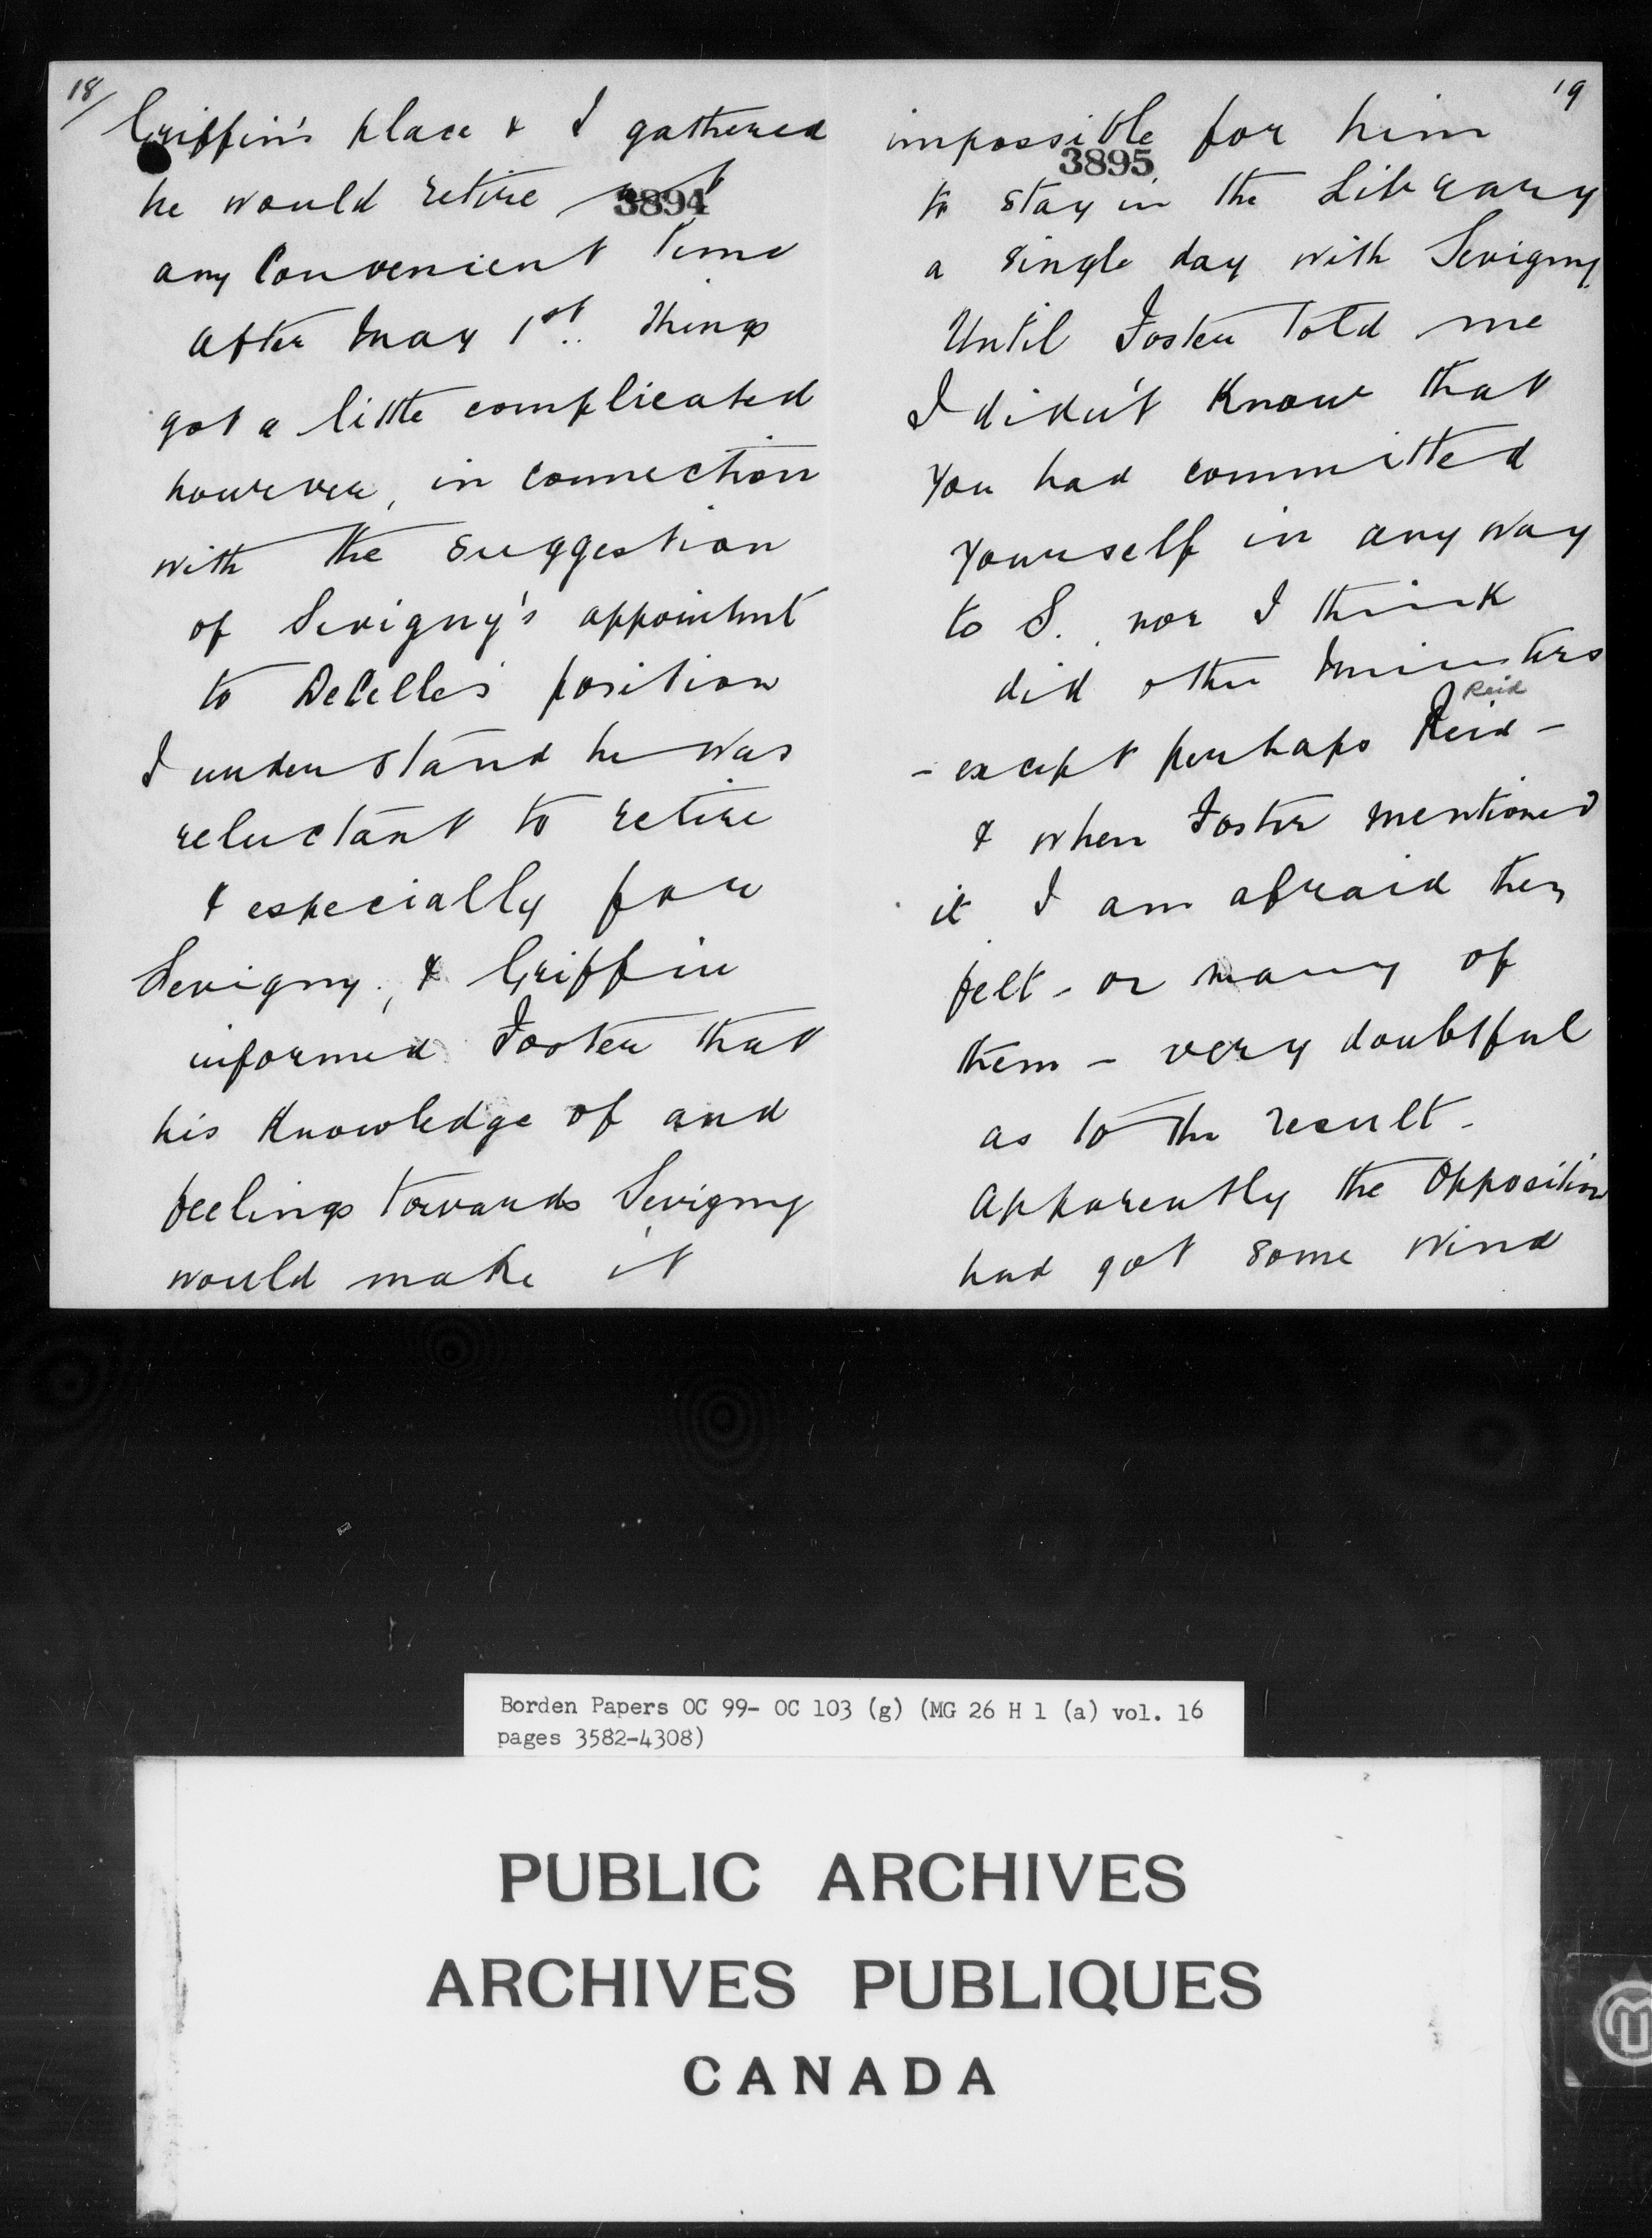 18/
Griffin's place & I gathered
3894
he would retire at
any convenient time
after May 1st. Things
got a little complicated
however, in connection
with the suggestion
of Sevigny's appointmt
to DeCelles' position
I understand he was
reluctant to retire
& especially for
Sevigny, & Griffin
informed Foster that
his knowledge of and
feelings towards Sevigny
would make it
19
impossible for him
3895
to stay in the Library
a single day with Sevigny
Until Foster told me
I didn't know that
you had committed
yourself in any way
to S. nor I think
did other Ministers
Reid
- except perhaps Reid -
& when Foster mentioned
it I am afraid they
felt - or many of
them - very doubtful
as to the result -
Apparently the Opposition
had got some wind
Borden Papers OC 99- OC 103 (g) (MG 26 H 1 (a) vol. 16
pages 3582-4308)
PUBLIC ARCHIVES
ARCHIVES PUBLIQUES
CANADA